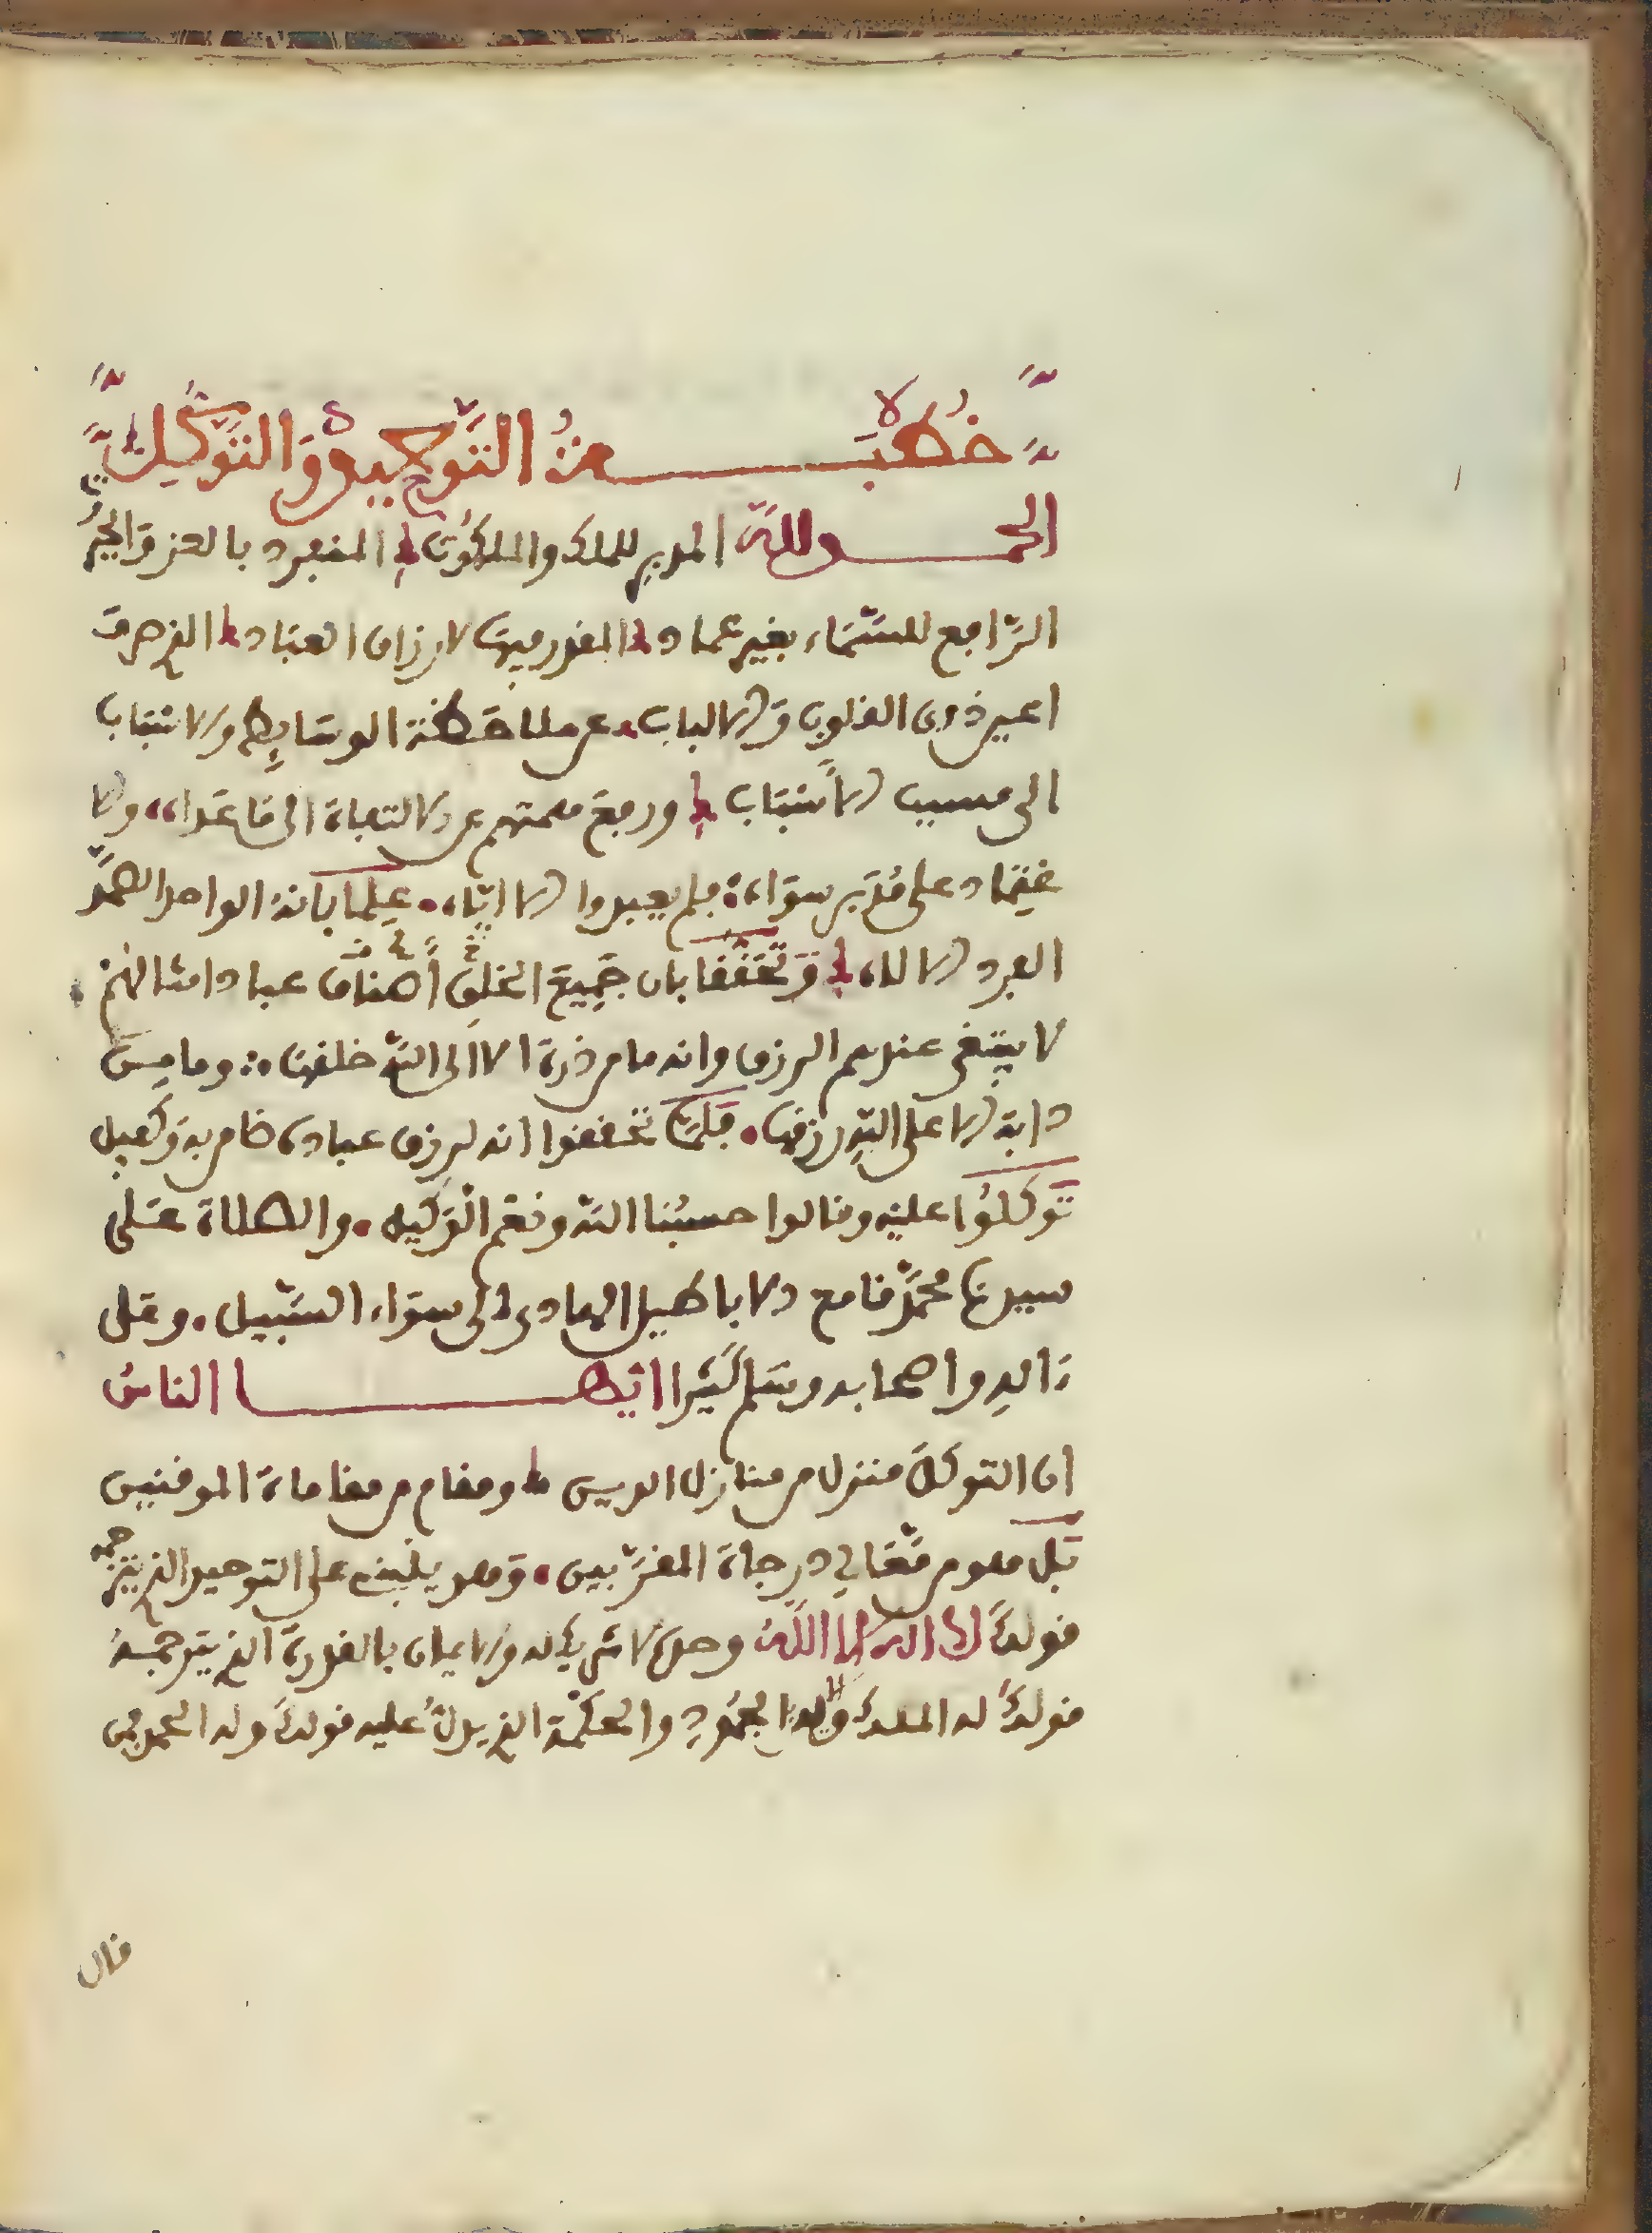 خطبة عن التوحيد والتوكيل
الحمد لله المدبر للملك والملكوت المنفرد بالعز والجبر
الرافع للسماء بغير عماد المقدر فيها لارزاق العباد الذي صرف
اعين ذوي القلوب والالباب عن ملاحظة الوسايط والاسباب
الى مسبب الاسباب ورفع همتهم عن الالتفاة الى ما عداه ولا
عتماد على مدبر سواه فلم يعبدوا الا اياه علما بانه الواحد الصمد
الفرد الاله وتحققا بان جميع الخلق أصناف عباد امثالهم
لا يبتغى عندهم الرزق وانه ما من ذرة الا الى الله خلقها وما من
دابة الا على الله رزقها فلما تحققوا انه لرزق عباده ضامن به وكفيل
توكلوا عليه وقالوا حسبنا الله ونعم الوكيل والصلاة على
سيدنا محمد قامع الاباطيل الهادي الى سواء السبيل وعلى
ءاله واصحابه وسلم كثيرا ايها الناس
ان التوكل منزل من منازل الدين ومقام من مقاماة الموقنين
بل هو من معالي درجاة المقربين وهو يلبنى على التوحيد الذي يترجمه
قولك لا اله الا الله وحده لا شريك له والايمان بالقدرة الذي يترجمه
قولك له الملك والجود والحكمة الذي يدل عليه قولك وله الحمد فمن
قال